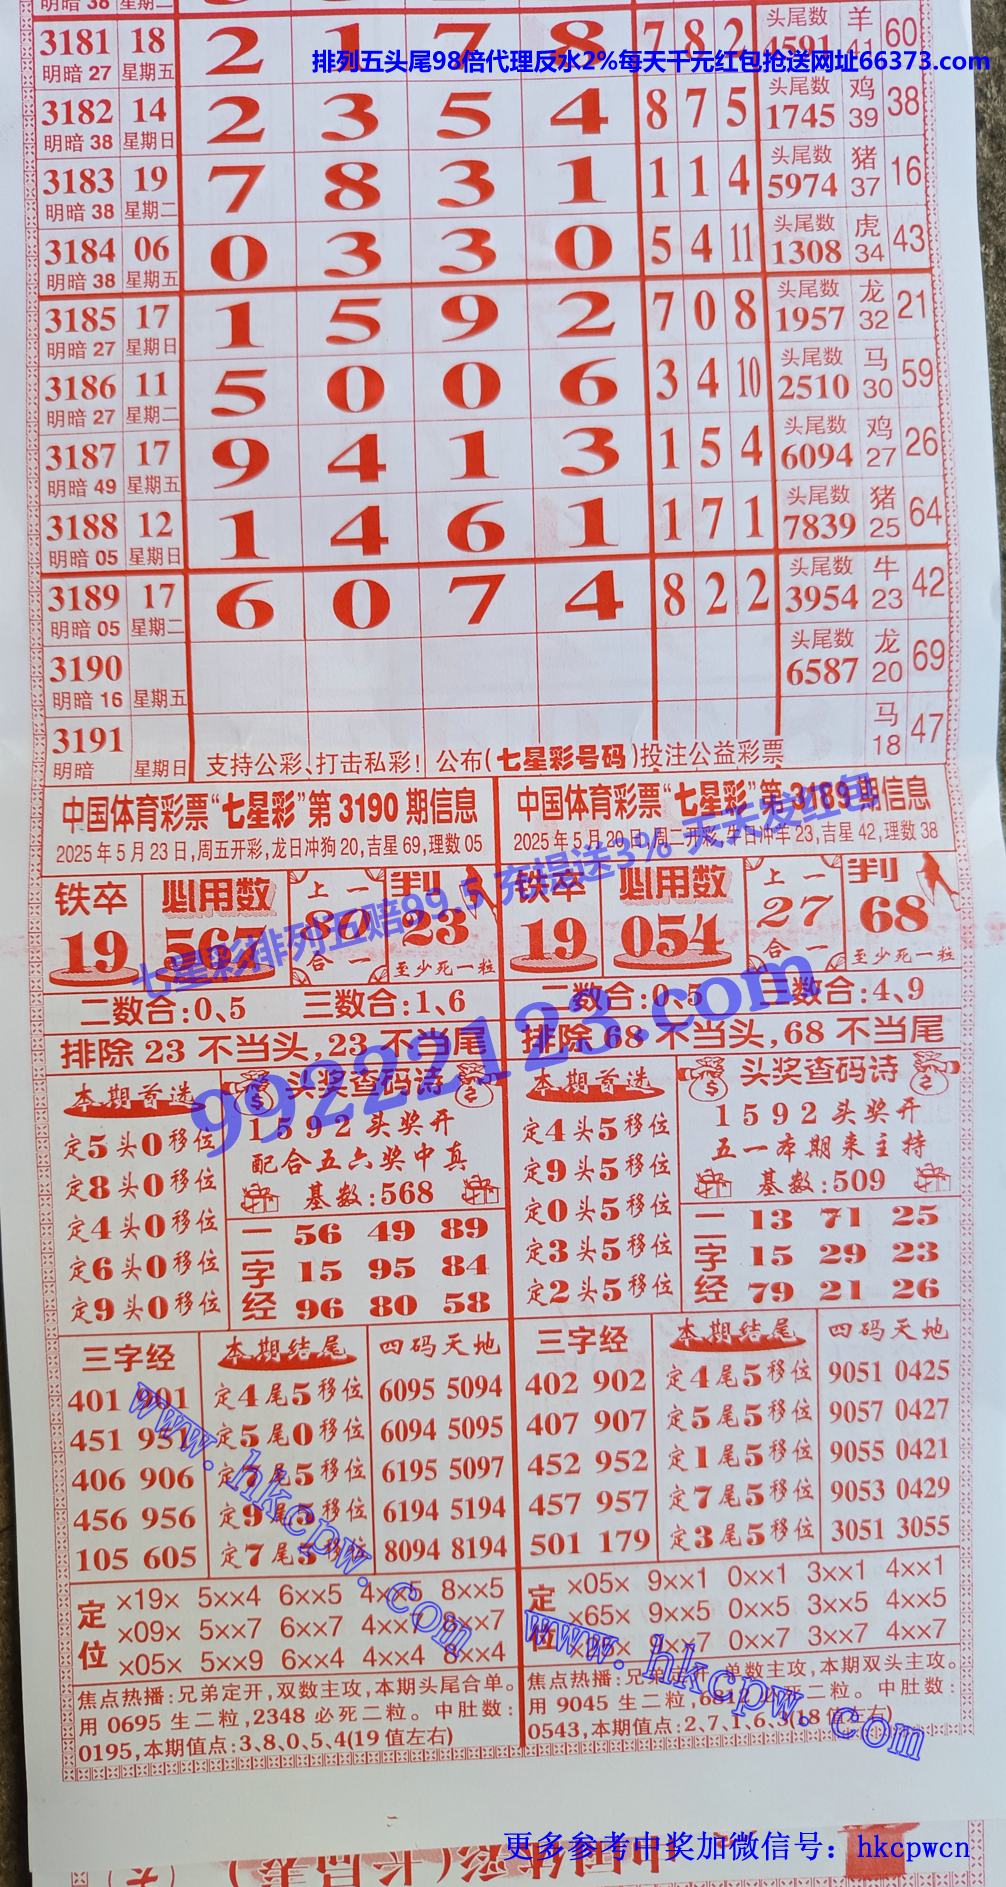 明暗 38 星期二
3181 18 2 1 7 8 7 8 2 头尾数 4591 羊 41 60
明暗 27 星期五
排列五头尾98倍代理反水2%每天千元红包抢送网址66373.com
3182 14 2 3 5 4 8 7 5 头尾数 1745 鸡 39 38
明暗 38 星期日
3183 19 7 8 3 1 1 1 4 头尾数 5974 猪 37 16
明暗 38 星期二
3184 06 0 3 3 0 5 4 11 头尾数 1308 虎 34 43
明暗 38 星期五
3185 17 1 5 9 2 7 0 8 头尾数 1957 龙 32 21
明暗 27 星期日
3186 11 5 0 0 6 3 4 10 头尾数 2510 马 30 59
明暗 27 星期二
3187 17 9 4 1 3 1 5 4 头尾数 6094 鸡 27 26
明暗 49 星期五
3188 12 1 4 6 1 1 7 1 头尾数 7839 猪 25 64
明暗 05 星期日
3189 17 6 0 7 4 8 2 2 头尾数 3954 牛 23 42
明暗 05 星期二
3190 头尾数 6587 龙 20 69
明暗 16 星期五
3191 马 18 47
明暗 星期日 支持公彩、打击私彩! 公布(七星彩号码)投注公益彩票
中国体育彩票“七星彩”第 3190 期信息
2025年5月23日,周五开彩,龙日冲狗20,吉星69,理数05
铁卒 19
必用数 567
上一 80 合一
判 23 至少死一粒
二数合:0、5 三数合:1、6
排除 23 不当头,23 不当尾
本期首选
定5头0移位
定8头0移位
定4头0移位
定6头0移位
定9头0移位
头奖查码诗
1592头奖开
配合五六奖中真
基数:568
二字经
56 49 89
15 95 84
96 80 58
三字经
401 901
451 951
406 906
456 956
105 605
本期结尾
定4尾5移位
定5尾0移位
尾5移位
定9尾5移位
定7尾5移位
四码天地
6095 5094
6094 5095
6195 5097
6194 5194
8094 8194
定位
×19× 5××4 6××5 4××5 8××5
×09× 5××7 6××7 4××7 8××7
×05× 5××9 6××4 4××4 8××4
焦点热播:兄弟定开,双数主攻,本期头尾合单。
用 0695 生二粒,2348 必死二粒。中肚数:
0195,本期值点:3、8、0、5、4(19 值左右)
中国体育彩票“七星彩”第 3189 期信息
2025年5月20日,周二开彩,牛日冲羊23,吉星42,理数38
铁卒 19
必用数 054
上一 27 合一
判 68 至少死一粒
二数合:0、5 三数合:4、9
排除 68 不当头,68 不当尾
本期首选
定4头5移位
定9头5移位
定0头5移位
定3头5移位
定2头5移位
头奖查码诗
1592头奖开
五一本期来主持
基数:509
二字经
13 71 25
15 29 23
79 21 26
三字经
402 902
407 907
452 952
457 957
501 179
本期结尾
定4尾5移位
定5尾5移位
定1尾5移位
定7尾5移位
定3尾5移位
四码天地
9051 0425
9057 0427
9055 0421
9053 0429
3051 3055
定位
×05× 9××1 0××1 3××1 4××1
×65× 9××5 0××5 3××5 4××5
9××7 0××7 3××7 4××7
焦点热播:兄弟定开,单数主攻,本期双头主攻。
用 9045 生二粒,6812 必死二粒。中肚数:
0543,本期值点:2、7、1、6、3(18 值左右)
七星彩排列五赔99.5 充提送3% 天天发红包
99222123.com
www.hkcpw.com
www.hkcpw.com
更多参考中奖加微信号：hkcpwcn